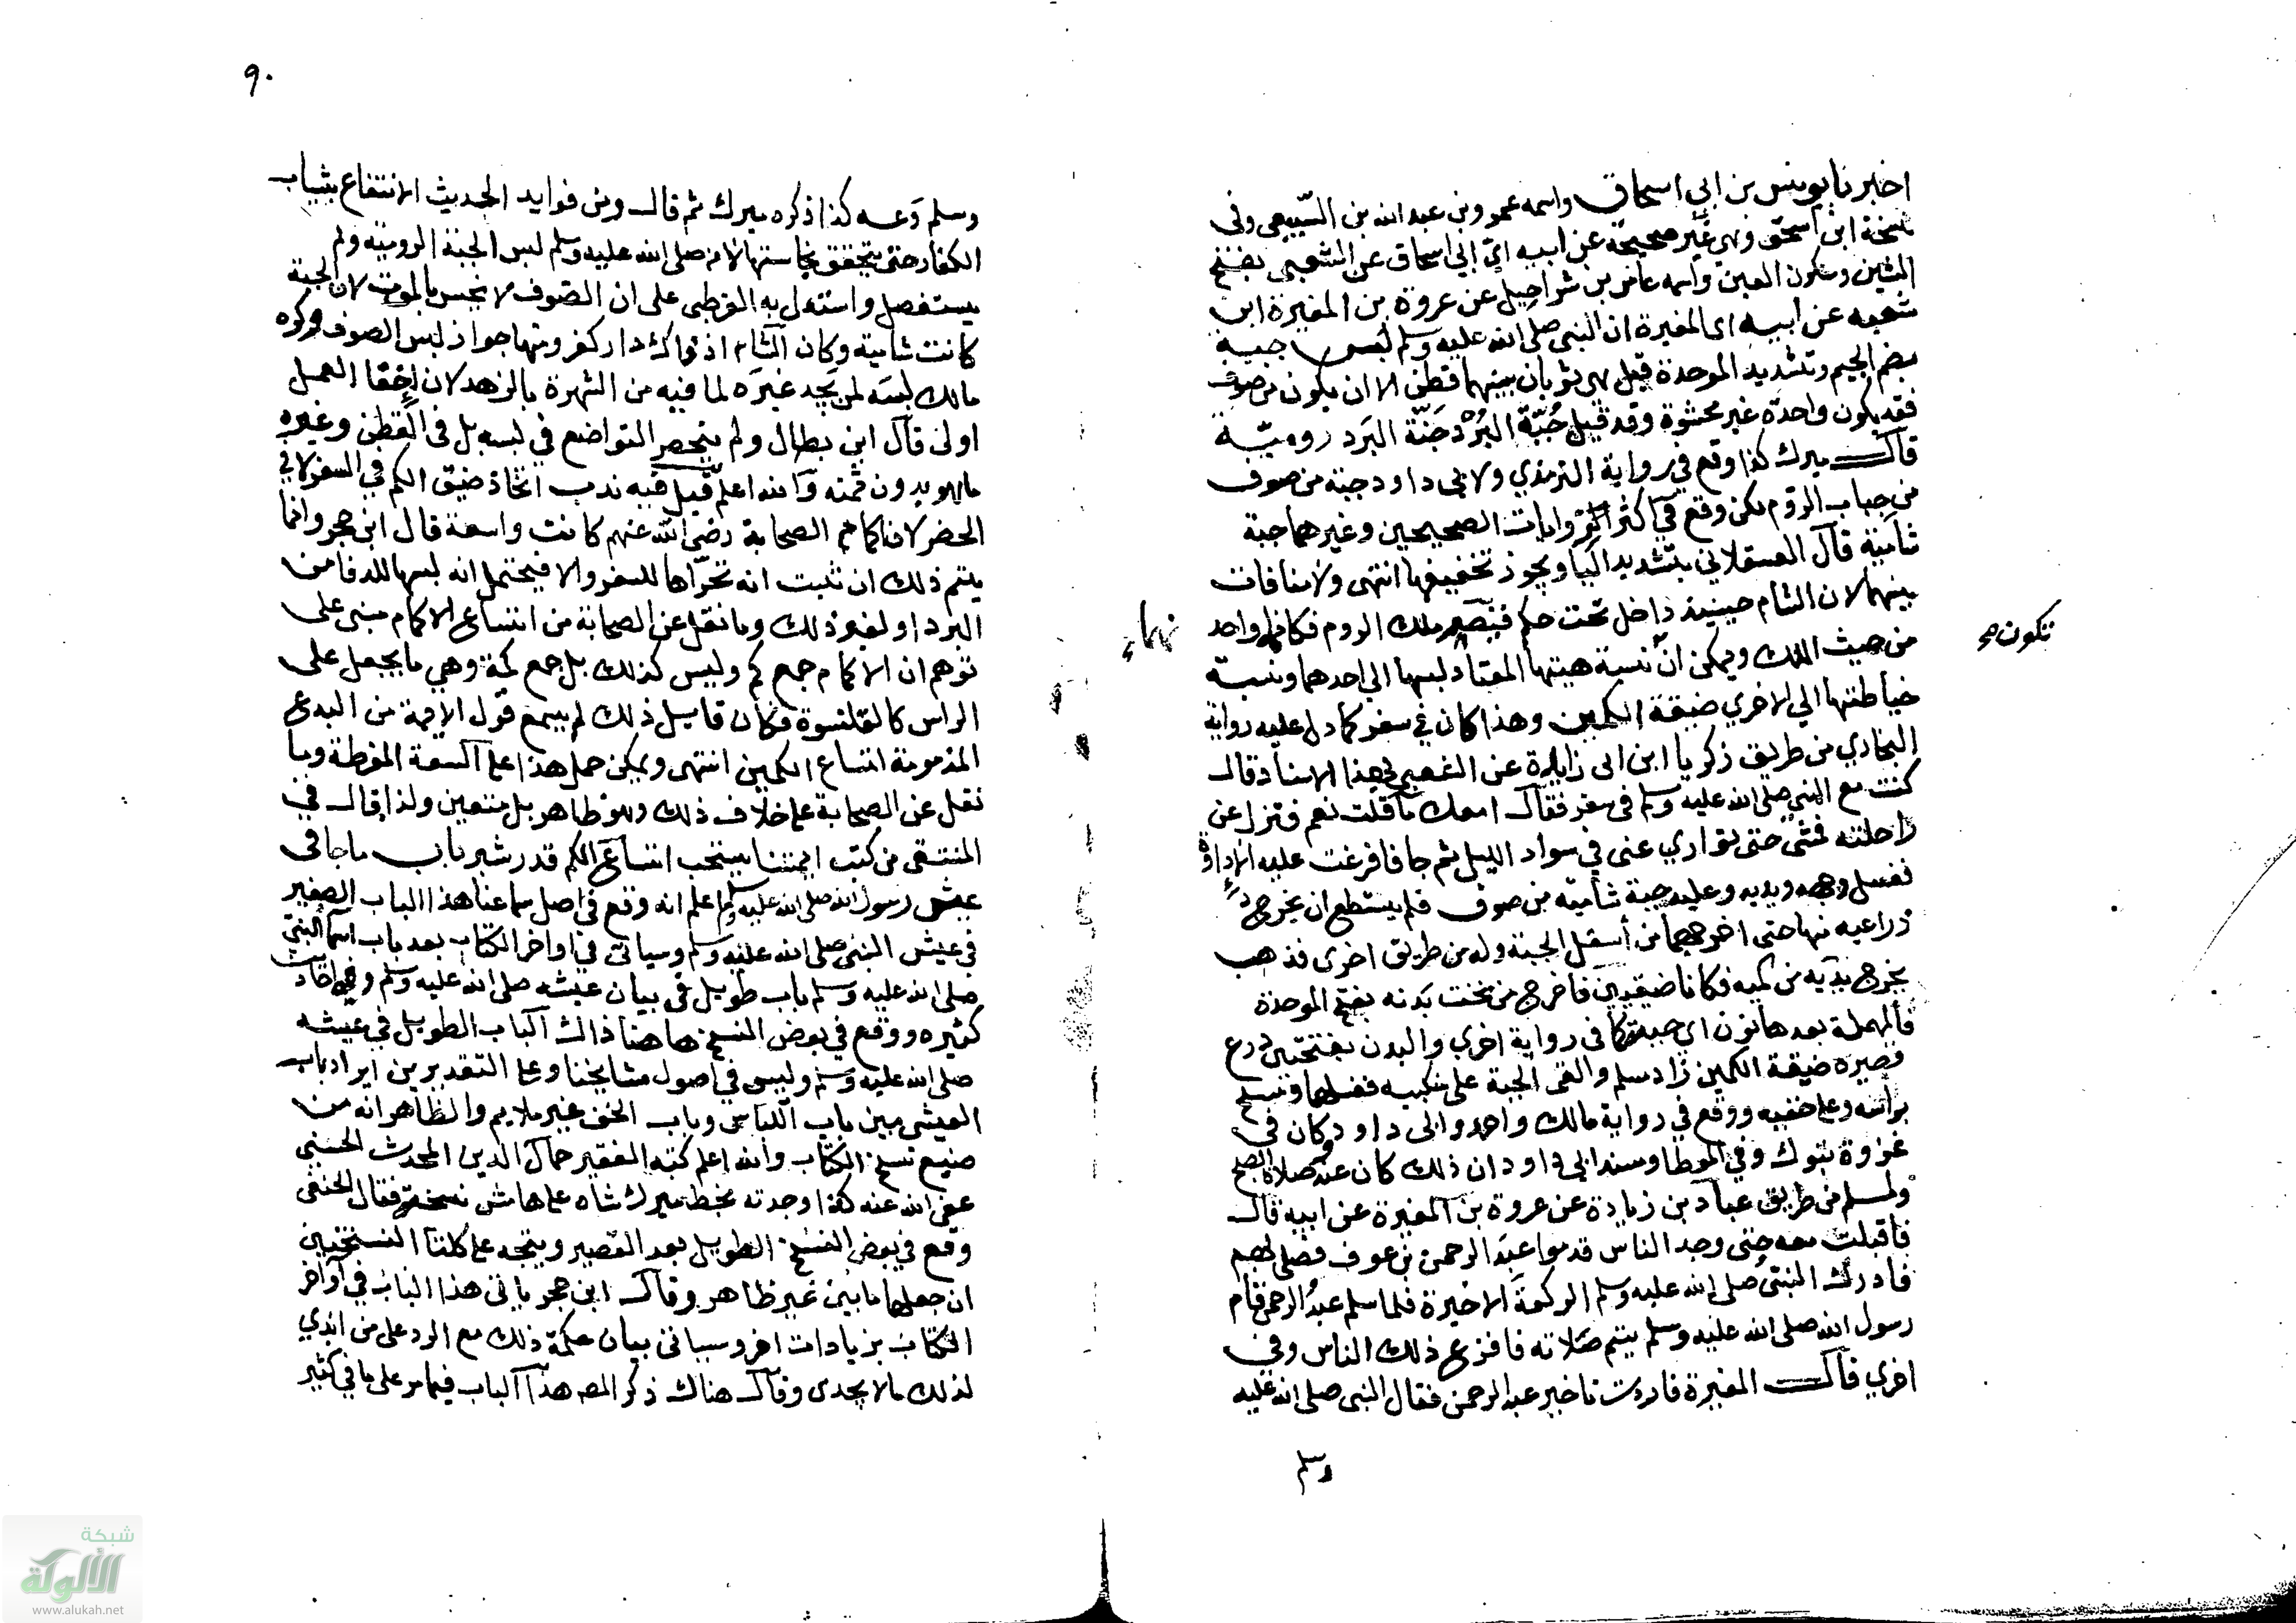 اخبرنا يونس بن ابي اسحاق واسمه عمرو بن عبد الله بن السبيعي وفي
نسخة ابن اسحق وهي غير صحيحة عن ابيه اي ابي اسحاق عن الشعبي بفتح
الشين وسكون العين واسمه عامر بن شراحيل عن عروة بن المغيرة ابن
شعبه عن ابيه اى المغيرة ان النبي صلى الله عليه وسلم لبس جبة
بضم الجيم وتشديد الموحدة قيل هي ثوبان بينهما قطن الا ان يكون من صوف
فقد يكون واحدة غير محشوة وقد قيل جُبّة البُرْد جَنّة البَرد روميّة
قال ميرك كذا وقع في رواية الترمذي ولابي داود جبة من صوف
من جباب الروم لكن وقع في اكثر الروايات الصحيحين وغيرهما جبة
شامية قال العسقلاني بتشديد اليا ويجوز تخفيفها انتهى ولا منافات
بينهما لان الشام حينيذ داخل تحت حكم قيصر ملك الروم فكانهما واحد
من حيث الملك ويمكن ان نسبة هيتها المعتاد لبسها الي احدهما ونسبة
خياطتها الي الاخري ضيقة الكمين وهذا كان في سفر كما دل عليه رواية
البخاري من طريق زكريا ابن ابى زايدة عن الشعبي بهذا الاسناد قال
كنت مع النبي صلى الله عليه وسلم في سفر فقال امعك ما قلت نعم فنزل عن
راحلته فمشى حتى تواري عني في سواد الليل ثم جا فافرغت عليه الاداوة
فغسل وجهه ويديه وعليه جبة شامية من صوف فلم يستطع ان يخرج
ذراعيه منها حتى اخرجهما من أسفل الجبة وله من طريق اخرى فذهب
يخرج يديه من كميه فكانا ضيقين فاخرج من تحت بَدنه بفتح الموحدة
فالمهملة بعدها نون اي جبته كما في رواية اخري والبدن بفتحتين درع
قصيره ضيقة الكمين زاد مسلم والقى الجبة على منكبيه فغسلهما ومسح
براسه وعلى خفيه ووقع في رواية مالك واحمد وابى داود وكان في
غزوة تبوك وفي الموطا ومسند ابي داود ان ذلك كان عند صلاة الصبح
ولمسلم من طريق عباد بن زيادة عن عروة بن المغيرة عن ابيه قال
فاقبلت معه حتى وجد الناس قدموا عبد الرحمن بن عوف فصلى بهم
فادرك النبي صلى الله عليه وسلم الركعة الاخيرة فلما سلم عبدُ الرحمن قام
رسول الله صلى الله عليه وسلم يتم صلاته فافزع ذلك الناس وفي
اخري قال المغيرة فاردت تاخير عبد الرحمن فقال النبي صلى الله عليه
وسلم
تكون صح
٩٠
وسلم دَعه كذا ذكره ميرك ثم قال ومن فوايد الحديث الانتفاع بثياب
الكفار حتى يتحقق نجاستها لانه صلى الله عليه وسلم لبس الجبة الرومية ولم
يستفصل واستدل به القرطبي على ان الصوف لا ينجس بالموت لان الجبة
كانت شامية وكان الشام اذ ذاك دار كفر ومنها جواز لبس الصوف وكره
مالك لبسَه لمن يجد غيرَه لما فيه من الشهرة بالزهد لان اخفا العمل
اولى قال ابن بطال ولم ينحصر التواضع في لبسه بل في القطن وغيره
ما هو بدون ثمنه والله اعلم قيل فيه ندب اتخاذ ضيق الكم في السفر لا في
الحضر لان اكمام الصحابة رضي الله عنهم كانت واسعة قال ابن حجر وانما
يتم ذلك ان ثبت انه تحرّاها للسفر والا فيحتمل انه لبسها للدفا من
البرد او لغير ذلك وما نقل عن الصحابة من اتساع الاكمام مبني على
توهم ان الاكمام جمع كم وليس كذلك بل جمع كمة وهي ما يجعل على
الراس كالقلنسوة فكان قايل ذلك لم يسمع قول الايمة من البدع
المذمومة اتساع الكمين انتهى ويمكن حمل هذا على السعة المفرطة وما
نقل عن الصحابة على خلاف ذلك وهو ظاهر بل متعين ولذا قال في
المنتقى من كتب ايمتنا يستحب اتساع الكم قدر شبر باب ما جا في
عيش رسول الله صلى الله عليه وسلم اعلم انه وقع في اصل سماعنا هذا الباب الصغير
في عيش النبي صلى الله عليه وسلم وسياتى في اواخر الكتاب بعد باب اسما النبي
صلى الله عليه وسلم باب طويل في بيان عيشه صلى الله عليه وسلم وفيه احاديث
كثيره ووقع في بعض النسخ هاهنا ذاك الباب الطويل في عيشه
صلى الله عليه وسلم وليس في اصول مشايخنا وعلى التقديرين ايراد باب
العيش بين باب اللباس وباب الخف غير ملايم والظاهر انه من
صنيع نسخ الكتاب والله اعلم كتبه الفقير جمال الدين المحدث الحسيني
عفى الله عنه كذا وجدته بخط ميرك شاه على هامش نسخته فقال الحنفي
وقع في بعض النسخ الطويل بعد القصير ويتجه على كلتا النسختين
ان جعلهما بابين غير ظاهر وقال ابن حجر ياتى هذا الباب في اواخر
الكتاب بزيادات اخر وسياتى بيان حكمة ذلك مع الرد على من ابدي
لذلك ما لا يجدى وقال هناك ذكر المص هذا الباب فيما مر على ما في كثير